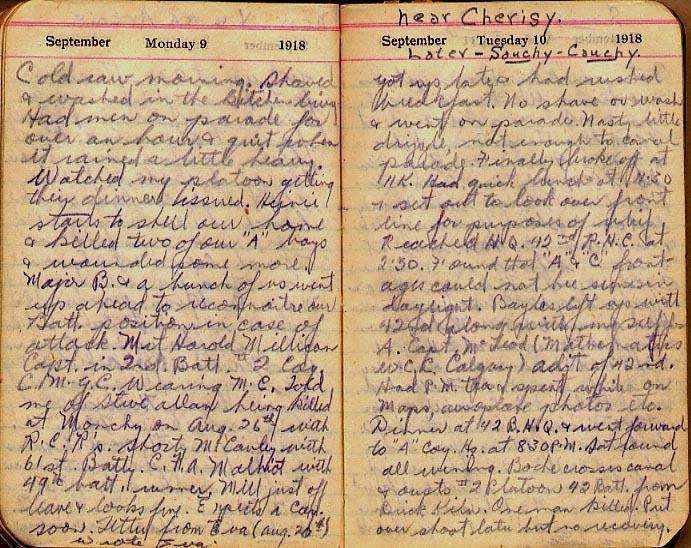 September Monday 9 1918
Cold raw morning. Shaved
& washed in the bitching bivy
Had men on parade for
over an hour & quit when
it rained a little heavy.
Watched my platoon getting
their dinner issued. Heinie
starts to shell our home
& killed two of our "A" boys
& wounded some more.
Major B. & a bunch of us went
up ahead to reconnoitre our
Batt. position in case of
attack. Met Harold Milligan
Capt. in 2nd. Batt. #2 Coy.
C.M.G.C. Wearing M.C. Told
me of Steve Allan being killed
at Monchy on Aug. 26th with
R.C.R's. Shorty McCauley with
61st. Batty. C.F.A. Malhot with
49th batt. Mill just off
leave & looks fine. Expects a Can.
soon. Letter from Eva (aug. 20th)
wrote Eva.
near Cherisy.
September Tuesday 10 1918
Later - Sauchy-Cauchy.
Got up late & had rushed
breakfast. No shave or wash
& went on parade. Nasty little
drizzle, not enough to cancel
parade. Finally broke off at
11K. Had quick lunch at 11:30
& set out to look over front
line for purposes of relief.
Reached H.Q. 42nd R.H.C. at
2:30. Found that "A" & "C" front-
ages could not be seen in
daylight. Bayles left us with
42nd along with
A. Capt. McLeod (Mathematics
W.C.C. Calgary) adjt of 42nd.
Had P.M. tea & spent while on
Maps, aeroplane photos etc.
Dinner at 42 B.H.Q. & went forward
to "A" Coy. Hq. at 8:30 P.M. Sat round
all evening. Boche crosses canal
& ousts #2 Platoon 42 Batt. from
Brick Kiln. One man killed. Put
over shoot later but no recovery.